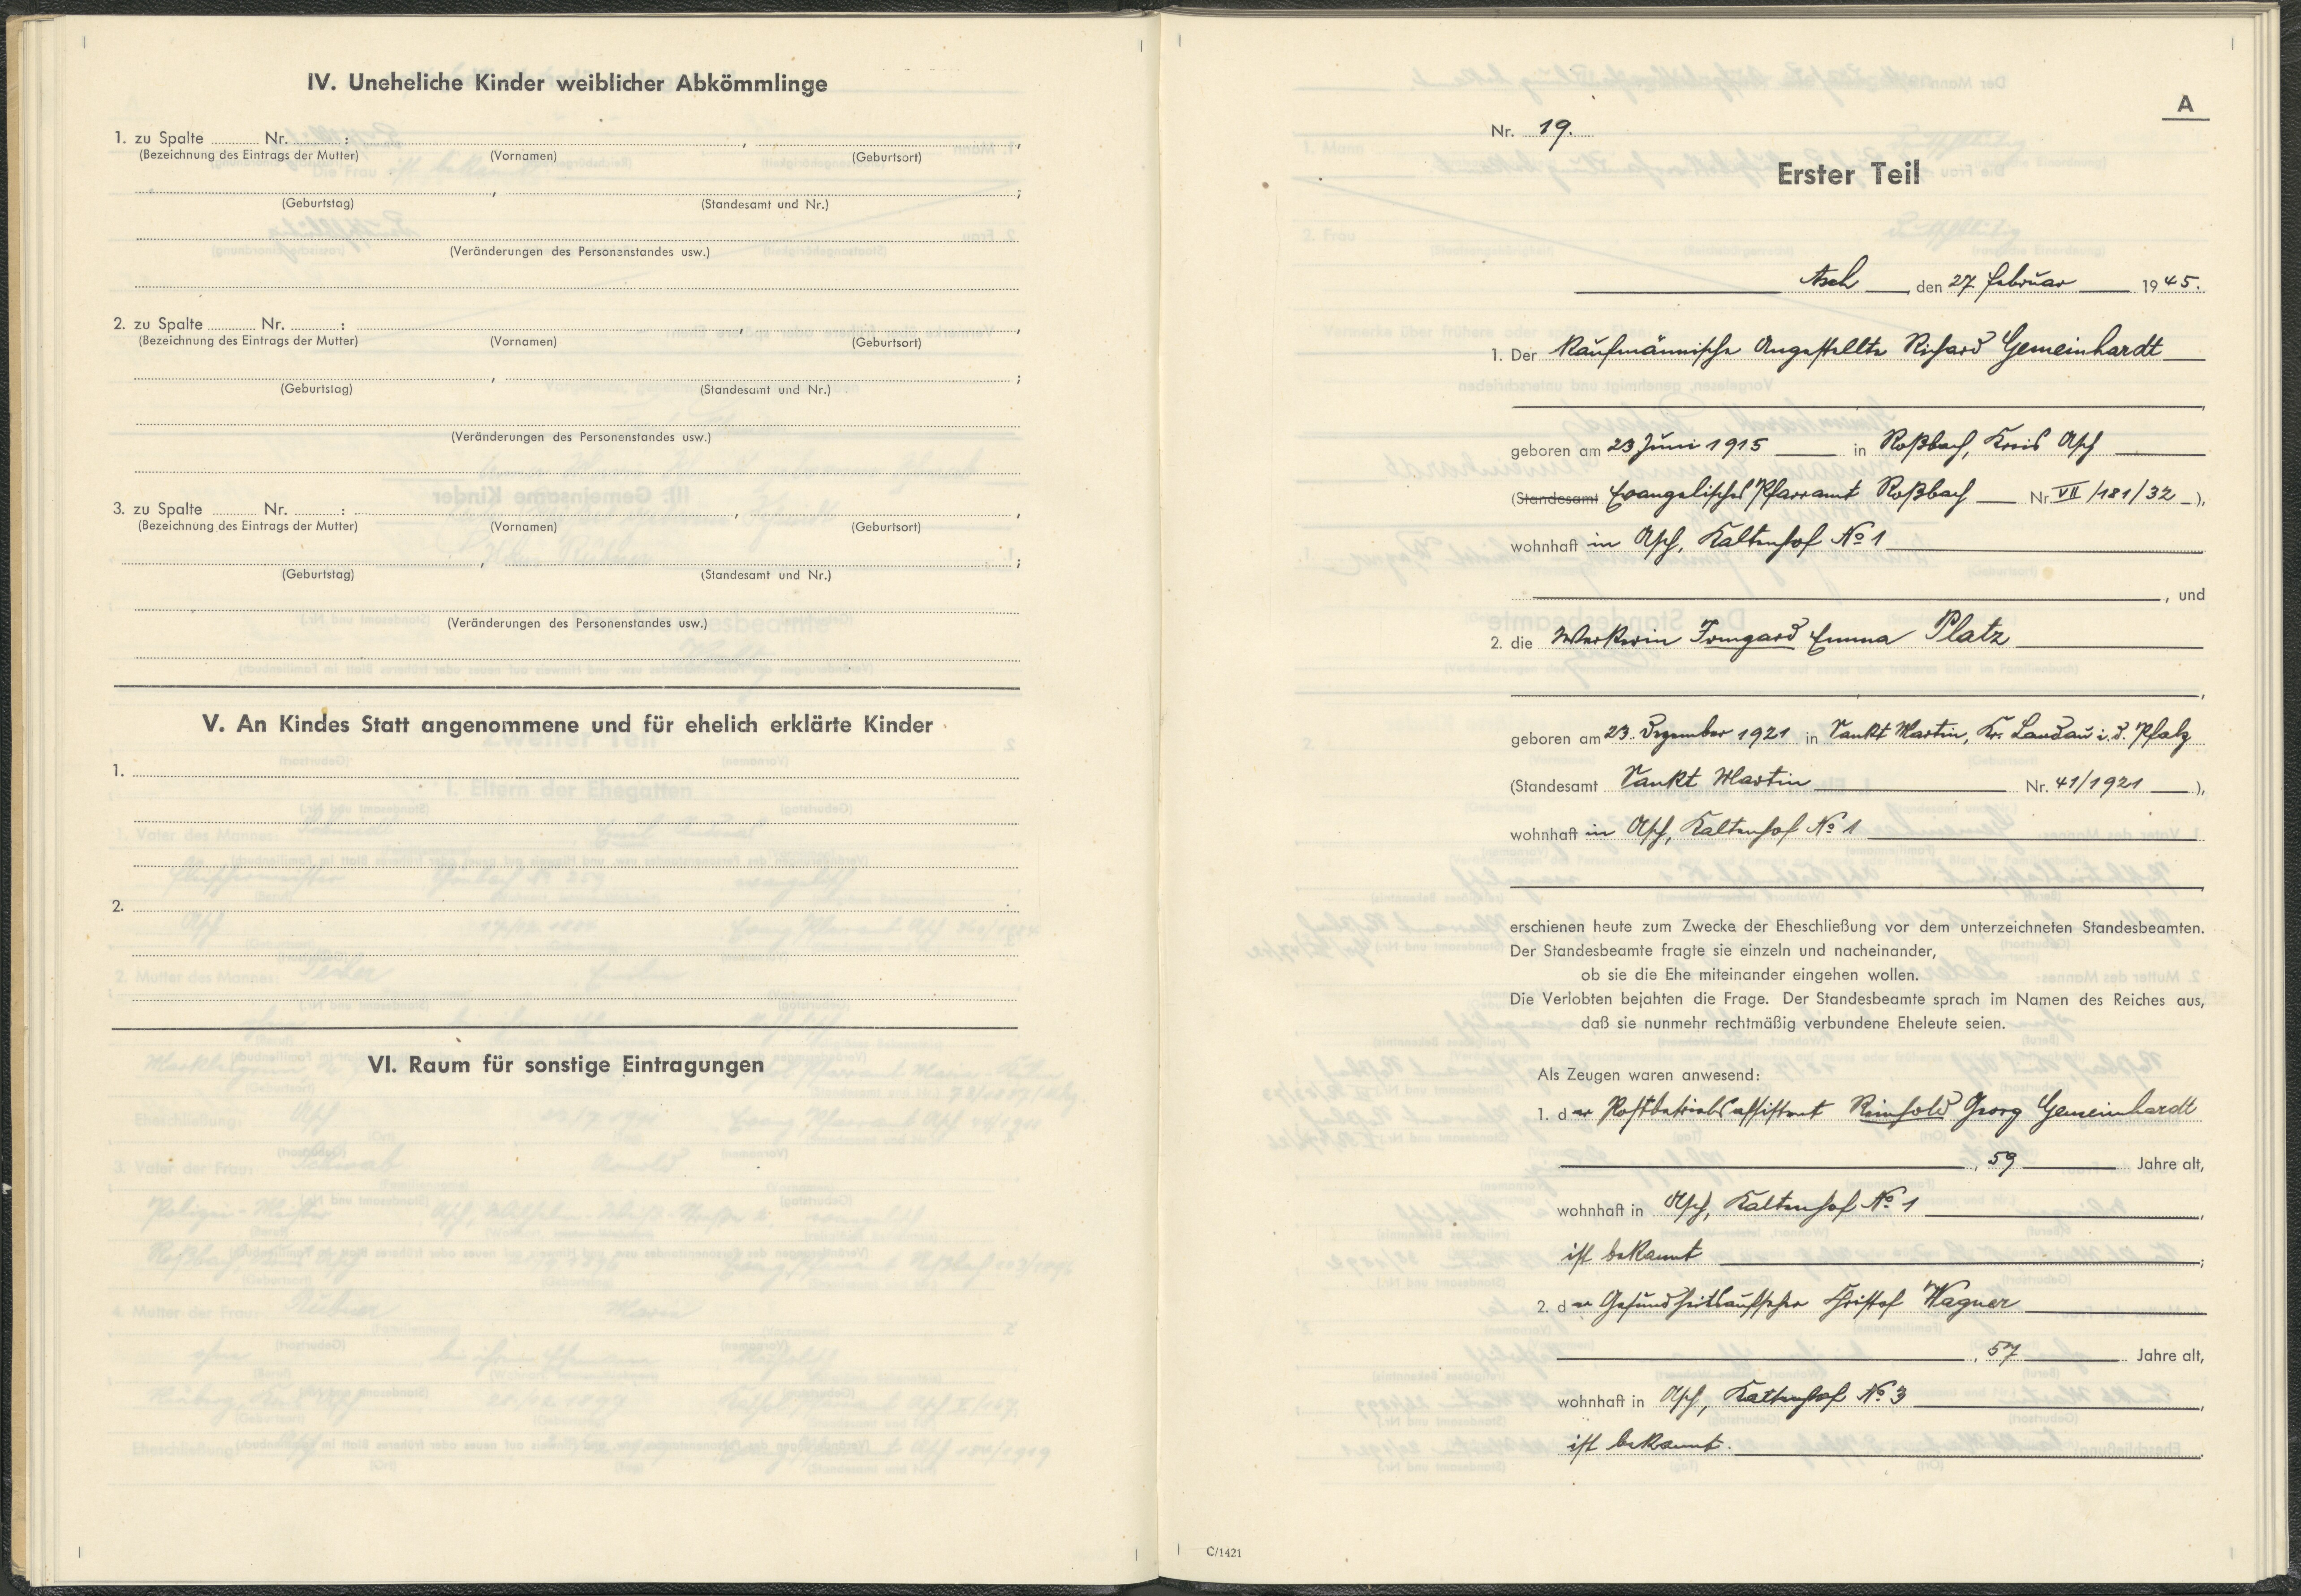 IV. Uneheliche Kinder weiblicher Abkömmlinge
1. zu Spalte ........ Nr. ........ : ........ , ........ ,
(Bezeichnung des Eintrags der Mutter) (Vornamen) (Geburtsort)
........ , ........ ;
(Geburtstag) (Standesamt und Nr.)
(Veränderungen des Personenstandes usw.)
2. zu Spalte ........ Nr. ........ : ........ , ........ ,
(Bezeichnung des Eintrags der Mutter) (Vornamen) (Geburtsort)
........ , ........ ;
(Geburtstag) (Standesamt und Nr.)
(Veränderungen des Personenstandes usw.)
3. zu Spalte ........ Nr. ........ : ........ , ........ ,
(Bezeichnung des Eintrags der Mutter) (Vornamen) (Geburtsort)
........ , ........ ;
(Geburtstag) (Standesamt und Nr.)
(Veränderungen des Personenstandes usw.)
V. An Kindes Statt angenommene und für ehelich erklärte Kinder
1.
2.
VI. Raum für sonstige Eintragungen
A
Nr. 19.
Erster Teil
Asch, den 27. Februar 1945.
1. Der Kaufmännische Angestellte Richard Gemeinhardt
geboren am 23 Juni 1915 in Roßbach, Kreis Asch
(Standesamt Evangelisches Pfarramt Roßbach Nr. VII/181/32),
wohnhaft in Asch, Kaltenhof No 1
, und
2. die Werkerin Irmgard Emma Platz
,
geboren am 23. Dezember 1921 in Sankt Martin, Kr. Landau i. d. Pfalz
(Standesamt Sankt Martin Nr. 41/1921),
wohnhaft in Asch, Kaltenhof No 1
erschienen heute zum Zwecke der Eheschließung vor dem unterzeichneten Standesbeamten.
Der Standesbeamte fragte sie einzeln und nacheinander,
ob sie die Ehe miteinander eingehen wollen.
Die Verlobten bejahten die Frage. Der Standesbeamte sprach im Namen des Reiches aus,
daß sie nunmehr rechtmäßig verbundene Eheleute seien.
Als Zeugen waren anwesend:
1. der Postbetriebsassistent Reinhold Georg Gemeinhardt
, 59 Jahre alt,
wohnhaft in Asch, Kaltenhof No 1,
ist bekannt ;
2. der Gesundheitsaufseher Christof Wagner
, 57 Jahre alt,
wohnhaft in Asch, Kaltenhof No 3,
ist bekannt.
C/1421